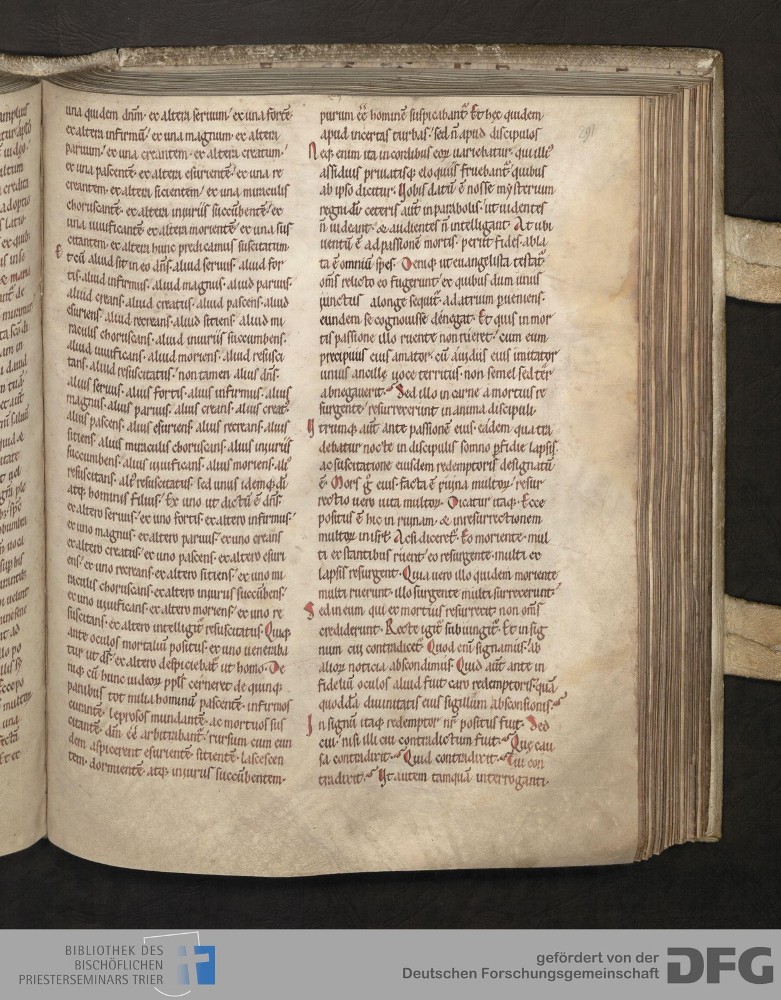 una quidem dnm̄. ex altera seruum. ex una fortē
ex altera infirmū. ex una magnum. ex altera
paruum. ex una creantem. ex altera creatum.
ex una pascentē. ex altera esurientē. ex una re
creantem. ex altera sicientem. ex una miraculis
choruscantē. ex altera iniuriis succūbentē. ex
una uiuificantē. ex altera morientē. ex una sus
citantem. ex altera hunc predicamus suscitatum.
Et cū aliud sit in eo dn̄s. aliud seruus. aliud for
tis. aliud infirmus. aliud magnus. aliud paruus.
aliud creans. aliud creatus. aliud pascens. aliud
esuriens. aliud recreans. aliud sitiens. aliud mi
raculis choruscans. aliud iniuriis succumbens.
aliud uiuificans. aliud moriens. aliud resusci
tans. aliud resuscitatus. non tamen alius dn̄s.
alius seruus. alius fortis. alius infirmus. alius
magnus. alius paruus. alius creans. alius creat᷒.
alius pascens. alius esuriens. alius recreans. alius
sitiens. alius miraculis choruscans. alius iniuriis
succumbens. alius uiuificans. alius moriens. ali᷒
resuscitans. ali᷒ resuscitatus. sed unus idemq; di
atq; hominis filius. Ex uno ut dictū ē dn̄s.
ex altero seruus. ex uno fortis. ex altero infirmus.
ex uno magnus. ex altero paruus. ex uno creans
ex altero creatus. ex uno pascens. ex altero esuri
ens. ex uno recreans. ex altero sitiens. ex uno mi
raculis choruscans. ex altero iniuriis succūbens.
ex uno uiuificans. ex altero moriens. ex uno re
suscitans. ex altero intelligit᷑ resuscitatus. Quiq;
ante oculos mortaliū positus. ex uno ueneraba
tur ut d̄s. ex altero despiciebat᷑ ut homo. De
niq; cū hunc iudeoꝝ ppl̄s cerneret de quinq;
panibus tot milia hominū pascentē. infirmos
curantē. leprosos mundantē. ac mortuos sus
citantē. dm̄ eē arbitrabant᷑. rursum cum eun
dem aspicerent esurientē. sitientē. lascescen
tem. dormientē. atq; iniuriis succūbentem.
purum eē hominē suspicabant᷑. Et hęc quidem
apud incertas turbas. sed n̄ apud discipulos
Neq; enim ita in cordibus eoꝝ uariebatur. qui illi᷒
assiduis priuatisq; eloquiis fruebant᷑. quibus
ab ipso dicitur. Vobis datū ē nosse mysterium
regni di. ceteris aūt in parabolis. ut uidentes
n̄ uideant. & audientes n̄ intelligant. At ubi
uentū ē ad passionē mortis. periit fides. abla
ta ē omniū spes. Deniq; ut euangelista testat᷑
om̄s relicto eo fugerunt. ex quibus dum unus
a longe sequit᷑. ad atrium ꝑueniens.
eundem se cognouisse denegat. Et quis in mor
tis passione illo ruente non rueret. cum eum
precipuus eius amator. cū auidus eius imitator
unius ancillę uoce territus. non semel sed ter
abnegauerit. Sed illo in carne a mortuis re
surgente. resurrexerunt in anima discipuli
Vtrumq; aūt ante passionē eius. eadem qua tra
debatur nocte in discipulis somno ꝑfidie lapsis
ac suscitatione eiusdem redemptoris designatū
ē. Mors g̊ eius facta ē ruina multoꝝ. resur
rectio uero uita multoꝝ. Dicatur itaq;. Ecce
positus ē hic in ruinam. & in resurrectionem
multoꝝ in isrl̄. Ac si diceret. Eo moriente. mul
ti ex stantibus ruent. eo resurgente. multi ex
lapsis resurgent. Quia uero illo quidem moriente
multi ruerunt. illo surgente multi surrexerunt.
Sed in eum qui ex mortuis resurrexit. non om̄s
crediderunt. Recte igit᷑ subiungit᷑. Et in sig
num cui contradicet᷑. Quod enī signamus. ab
alioꝝ noticia abscondimus. Quid aūt ante in
fidelium oculos aliud fuit caro redemptoris. quā
quoddā diuinitatis eius sigillum absconsionis.
In signū itaq; redemptor nr̄ positus fuit. Sed
cui. nisi illi cui contradictum fuit. Quę cau
sa contradixit. Quid contradixit. Cui con
tradixit. Vt autem tamquā interroganti.
291
BIBLIOTHEK DES
BISCHÖFLICHEN
PRIESTERSEMINARS TRIER
gefördert von der
Deutschen Forschungsgemeinschaft
DFG